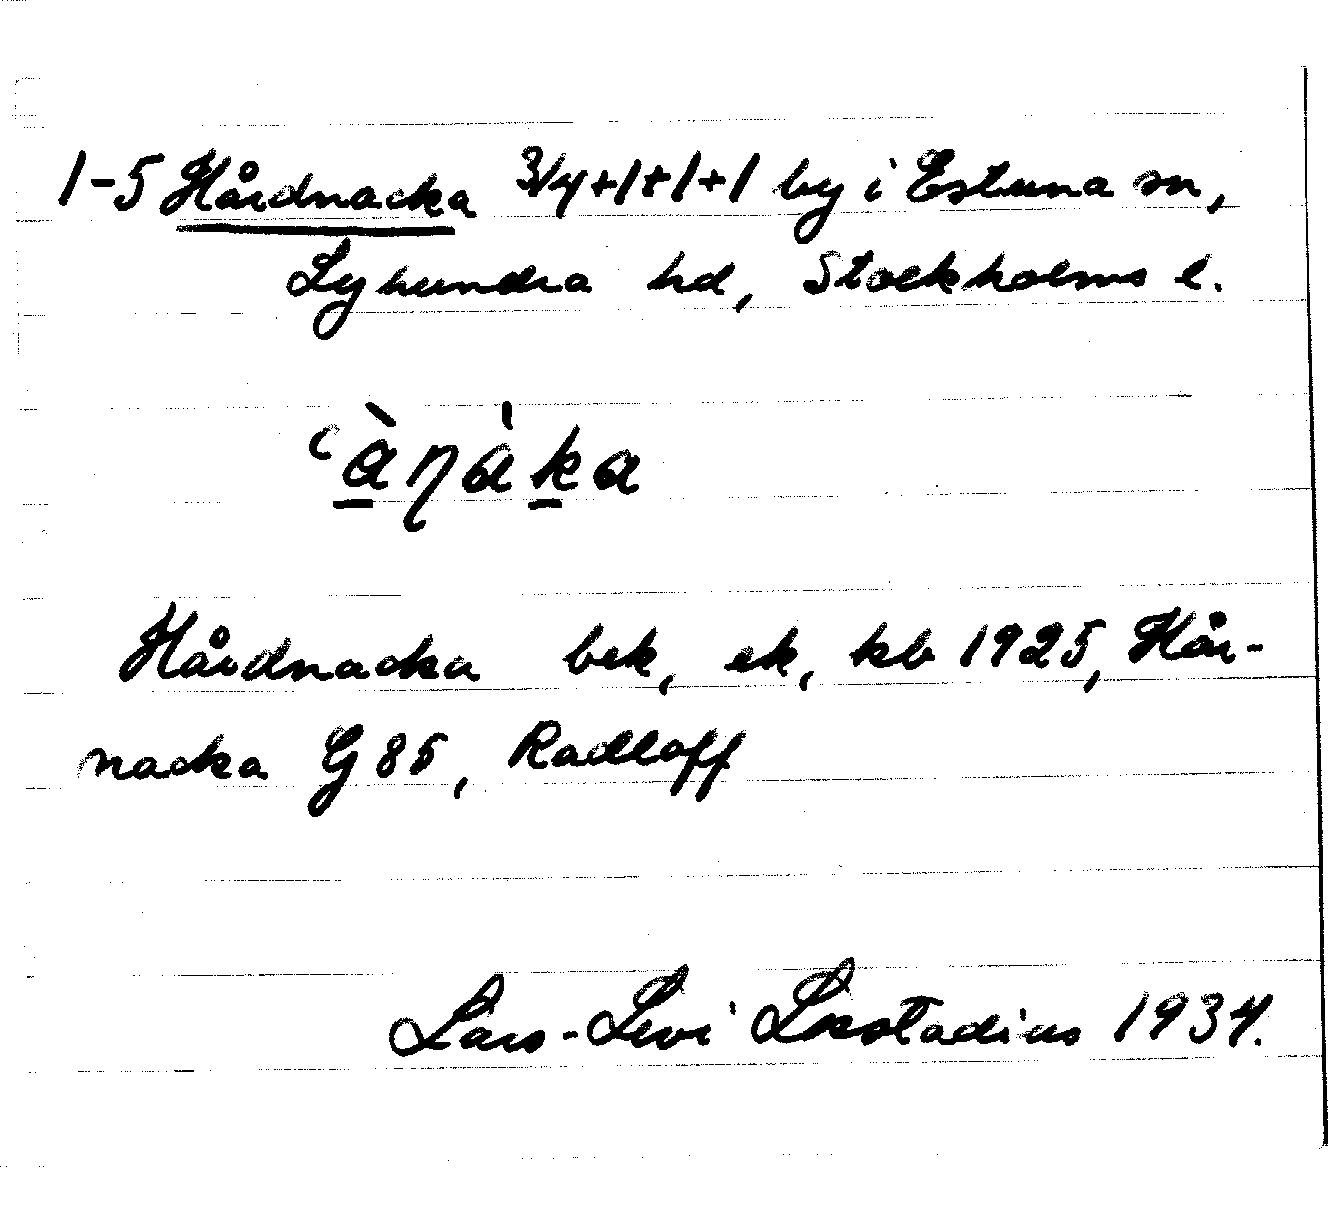 1-5 Hårdnacka 3/4+1+1+1 by i Estuna sn,
Lyhundra hd, Stockholms l.
Hårdnacka bek, ek, kb 1925, Hår-
nacka G85, Radloff
Lars-Levi Læstadius 1934.